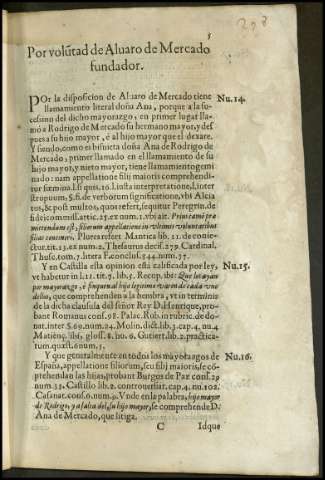 5
Por volũtad de Aluaro de Mercado
fundador.
POr la disposicion de Aluaro de Mercado tiene
llamamiento literal doña Ana, porque a la su-
cession del dicho mayorazgo, en primer lugar lla-
mò a Rodrigo de Mercado su hermano mayor, y des
pues a su hijo mayor, è al hijo mayor que el dexare.
Y siendo, como es bisnieta doña Ana de Rodrigo de
Mercado, primer llamado en el llamamiento de su
hijo mayor, y nieto mayor, tiene llamamiento gemi
nado: nam appellatione filij maioris comprehendi-
tur fœmina. l. si quis. 10. l. iusta interpretatione, l. inter
stropuum, §. fi. de verborum significatione, vbi Alcia
tus, & post multos, quos refert, sequitur Peregrin. de
fideicommiss. artic. 25. ex num. 1. vbi ait. Primò tamē præ
mittendum est, filiorum appellationem in vltimis voluntatibus
filias contineri, Plures refert Mantica lib. 11. de coniec-
tur. tit. 13. ex num. 2. Thesaurus decis. 279. Cardinal.
Thusc. tom. 7. litera F. conclus. 344. num. 37.
Y en Castilla esta opinion està calificada por ley,
vt habetur in l. 11. tit. 7. lib. 5. Recop. ibi: Que lo ayan
por mayorazgo, è finque en el hijo legitimo varon de cada vno
dellos, que comprehenden a la hembra, vt in terminis
de la dicha clausula del señor Rey D. Henrique, pro-
bant Romanus cons. 98. Palac. Rob. in rubric. de do-
nat. inter. §. 69. num. 24. Molin. dict. lib. 3. cap. 4. nu. 4
Matienç. ibi, gloss. 8. nu. 6. Gutierr. lib. 2. practica-
rum. quæst. 6. num. 5.
Y que generalmente en todos los mayorazgos de
España, appellatione filiorum, seu filij maioris, se cō-
prehendan las hijas, probant Burgos de Paz cons. 29
num. 33. Castillo lib. 2. controuersiar. cap. 4. nu. 102.
Casanat. cons. 6. num. 9. Vnde en la palabra, hijo mayor
de Rodrigo, y a falta del, su hijo mayor, se comprehende D.
Ana de Mercado, que litiga.
C
Idque
Nu. 14.
Nu. 15.
Nu. 16.